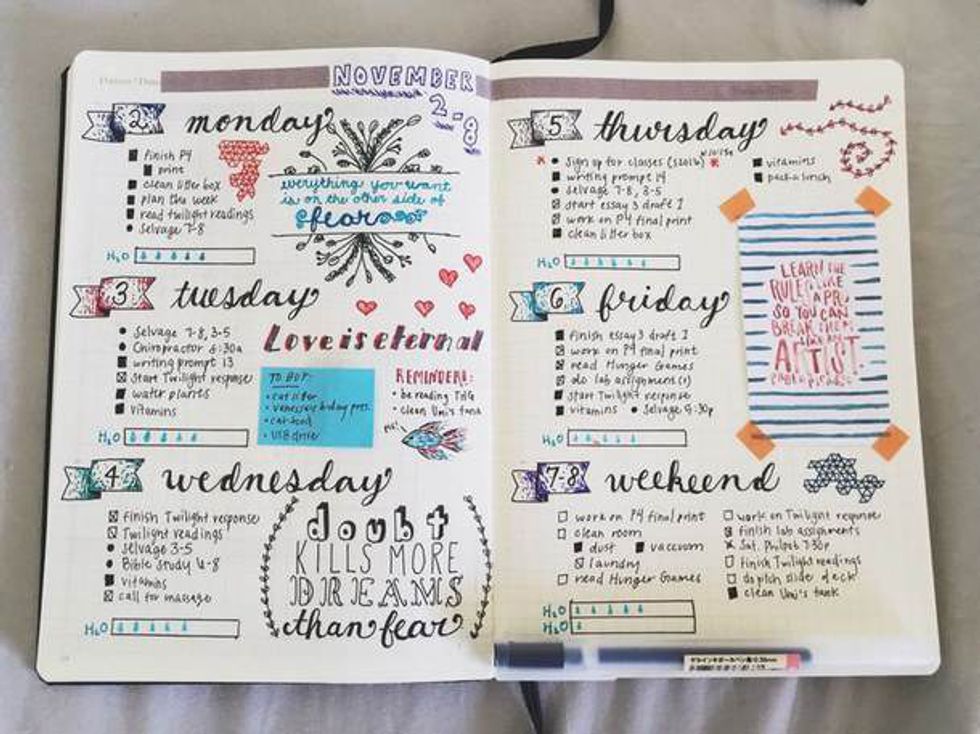 NOVEMBER
2-8
2 monday
finish P4
print
clean litter box
plan the week
read twilight readings
Selvage 7-8
H2O
everything you want
is on the other side of
fear
3 tuesday
Selvage 7-8, 3-5
Chiropractor 8:30a
writing prompt 13
Start Twilight response
water plants
vitamins
H2O
Love is eternal
TO BUY:
cat litter
cat food
USB drive
REMINDERS:
be reading THG
clean Umi's tank
4 wednesday
finish Twilight response
Twilight readings
Selvage 3-5
Bible Study 6-8
vitamins
call for massage
H2O
doubt
KILLS MORE
DREAMS
than fear
5 thursday
Sign up for classes (S2016)
writing prompt 14
Selvage 7-8, 3-5
start essay 3 draft 1
work on P4 final print
clean litter box
vitamins
pack a lunch
H2O
6 friday
finish essay 3 draft 1
work on P4 final print
read Hunger Games
do lab assignment(s)
start Twilight response
vitamins
Selvage 9:30p
H2O
LEARN THE
RULES LIKE
A PRO
SO YOU CAN
BREAK THEM
LIKE AN
ARTIST.
pablo picasso
7-8 weekend
work on P4 final print
clean room
dust
vaccuum
laundry
read Hunger Games
work on Twilight response
finish lab assignments
Sat. Philpot 7:30p
finish Twilight readings
dopitch slide deck
clean Umi's tank
H2O
H2O